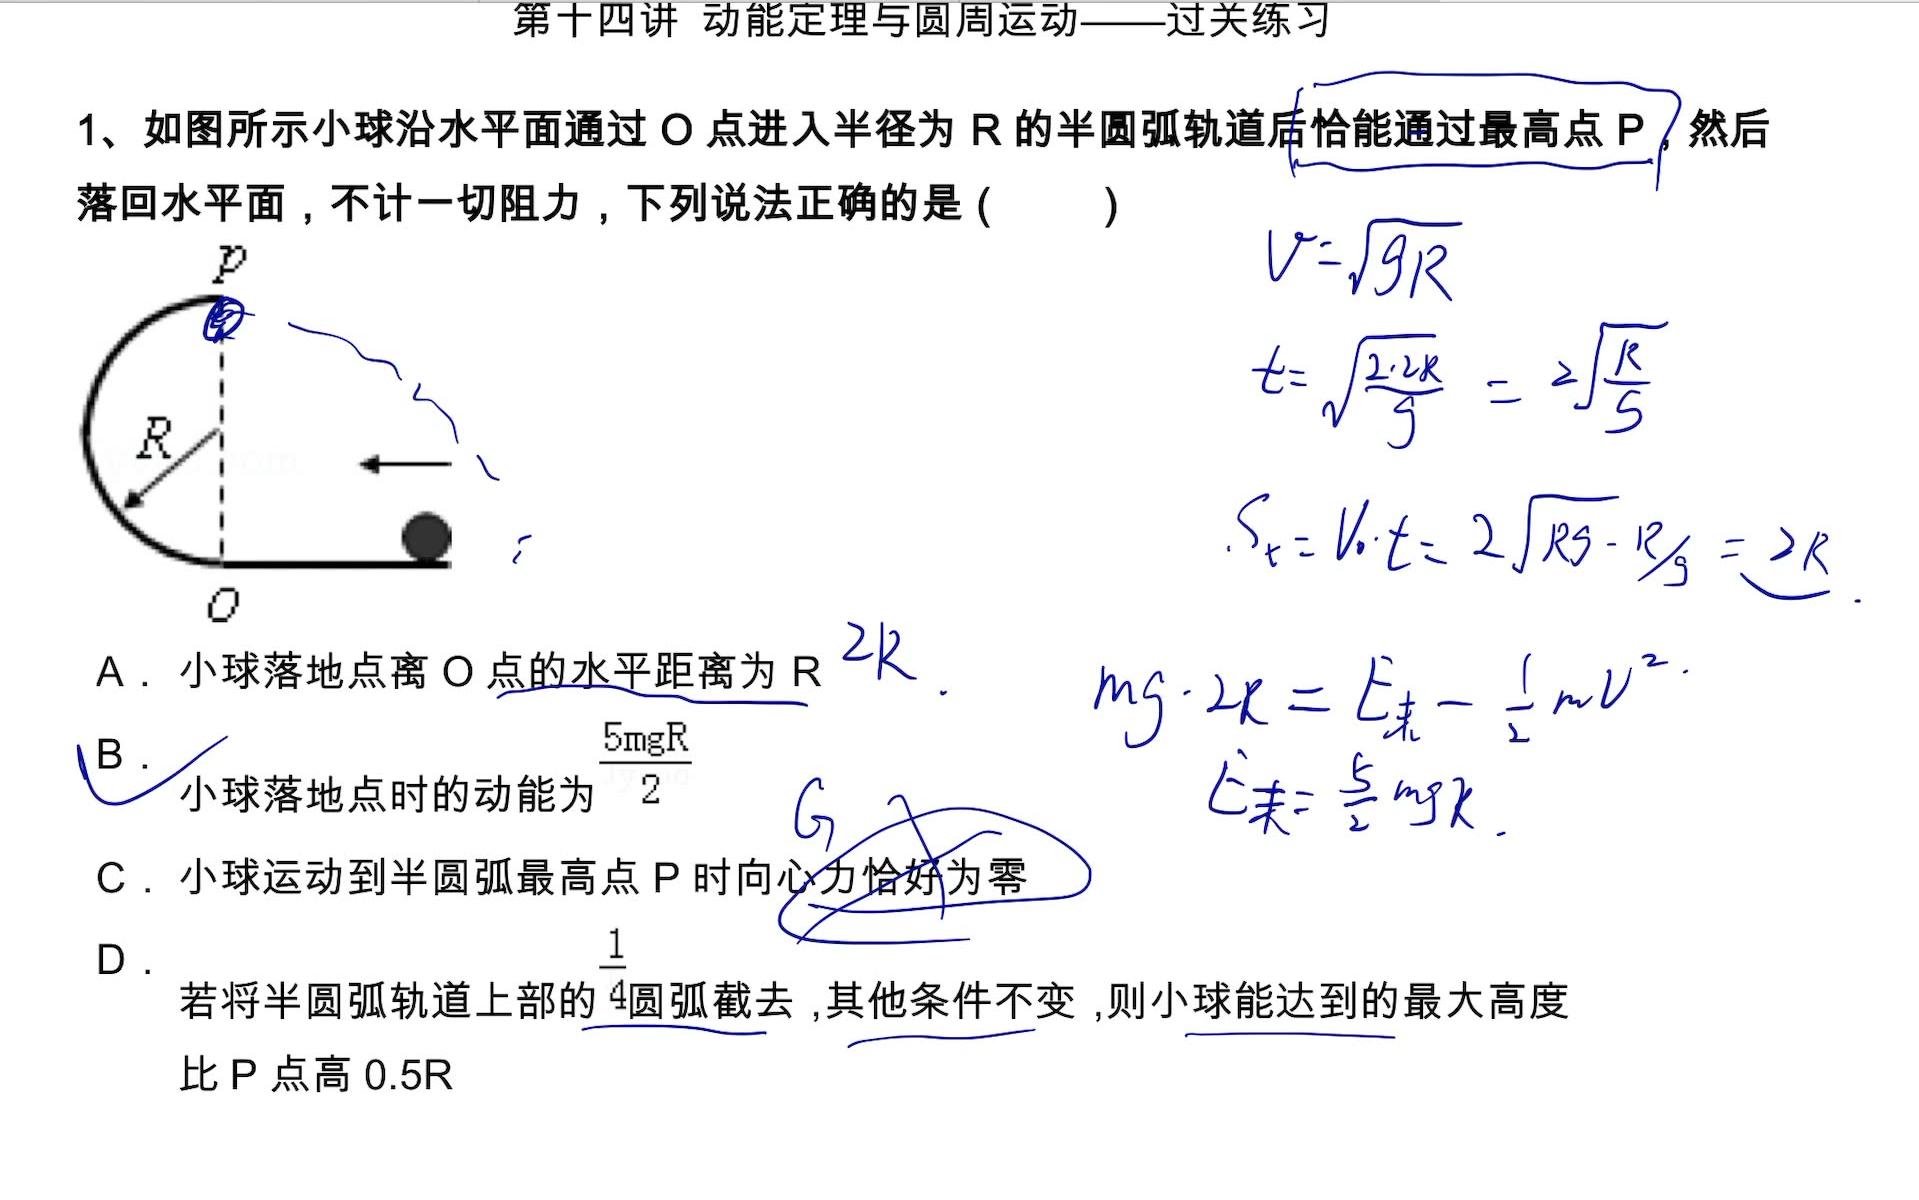 第十四讲 动能定理与圆周运动——过关练习
1、如图所示小球沿水平面通过 O 点进入半径为 R 的半圆弧轨道后恰能通过最高点 P，然后
落回水平面，不计一切阻力，下列说法正确的是（　　）
P
R
O
V=√gR
t=√(2·2R/g) = 2√(R/g)
S_t = V₀·t = 2√(Rg·R/g) = 2R.
A．小球落地点离 O 点的水平距离为 R 2R.
mg·2R = E末 - 1/2 mV².
B．小球落地点时的动能为 5mgR/2
E末 = 5/2 mgR.
G
C．小球运动到半圆弧最高点 P 时向心力恰好为零
D．若将半圆弧轨道上部的 1/4 圆弧截去，其他条件不变，则小球能达到的最大高度
比 P 点高 0.5R